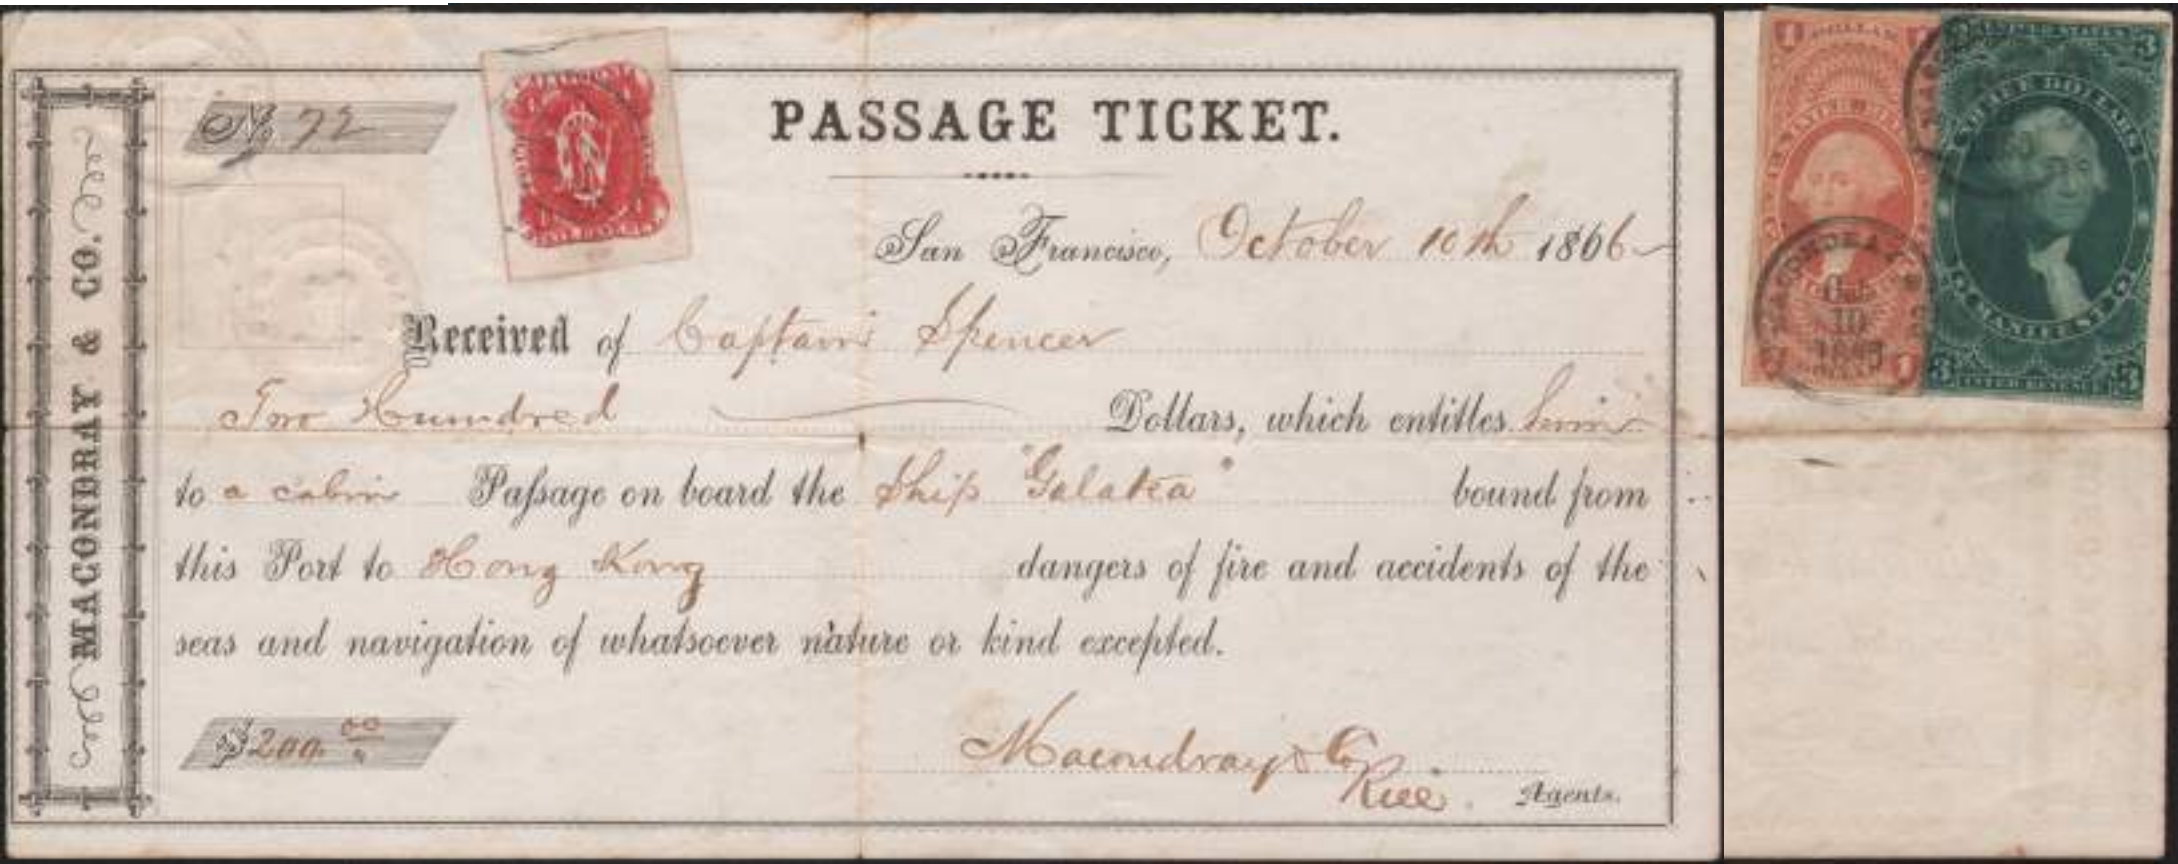 MACONDRAY & CO.
No. 72
PASSAGE TICKET.
San Francisco, October 10th 1866
Received of Captain Spencer
Two Hundred Dollars, which entitles him
to a cabin Passage on board the Ship "Galatea" bound from
this Port to Hong Kong dangers of fire and accidents of the
seas and navigation of whatsoever nature or kind excepted.
$200.00
Macondray & Co
Agents.
1 DOLLAR
MACONDRAY &
Oct
10
UNITED STATES
3
THREE DOLLARS
MANIFEST
3 INTER. REVENUE 3